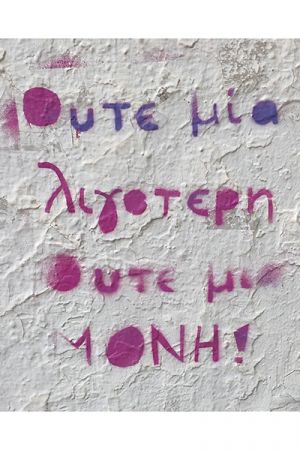 Ουτε μία
λιγοτερη
Ουτε μια
ΜΟΝΗ!